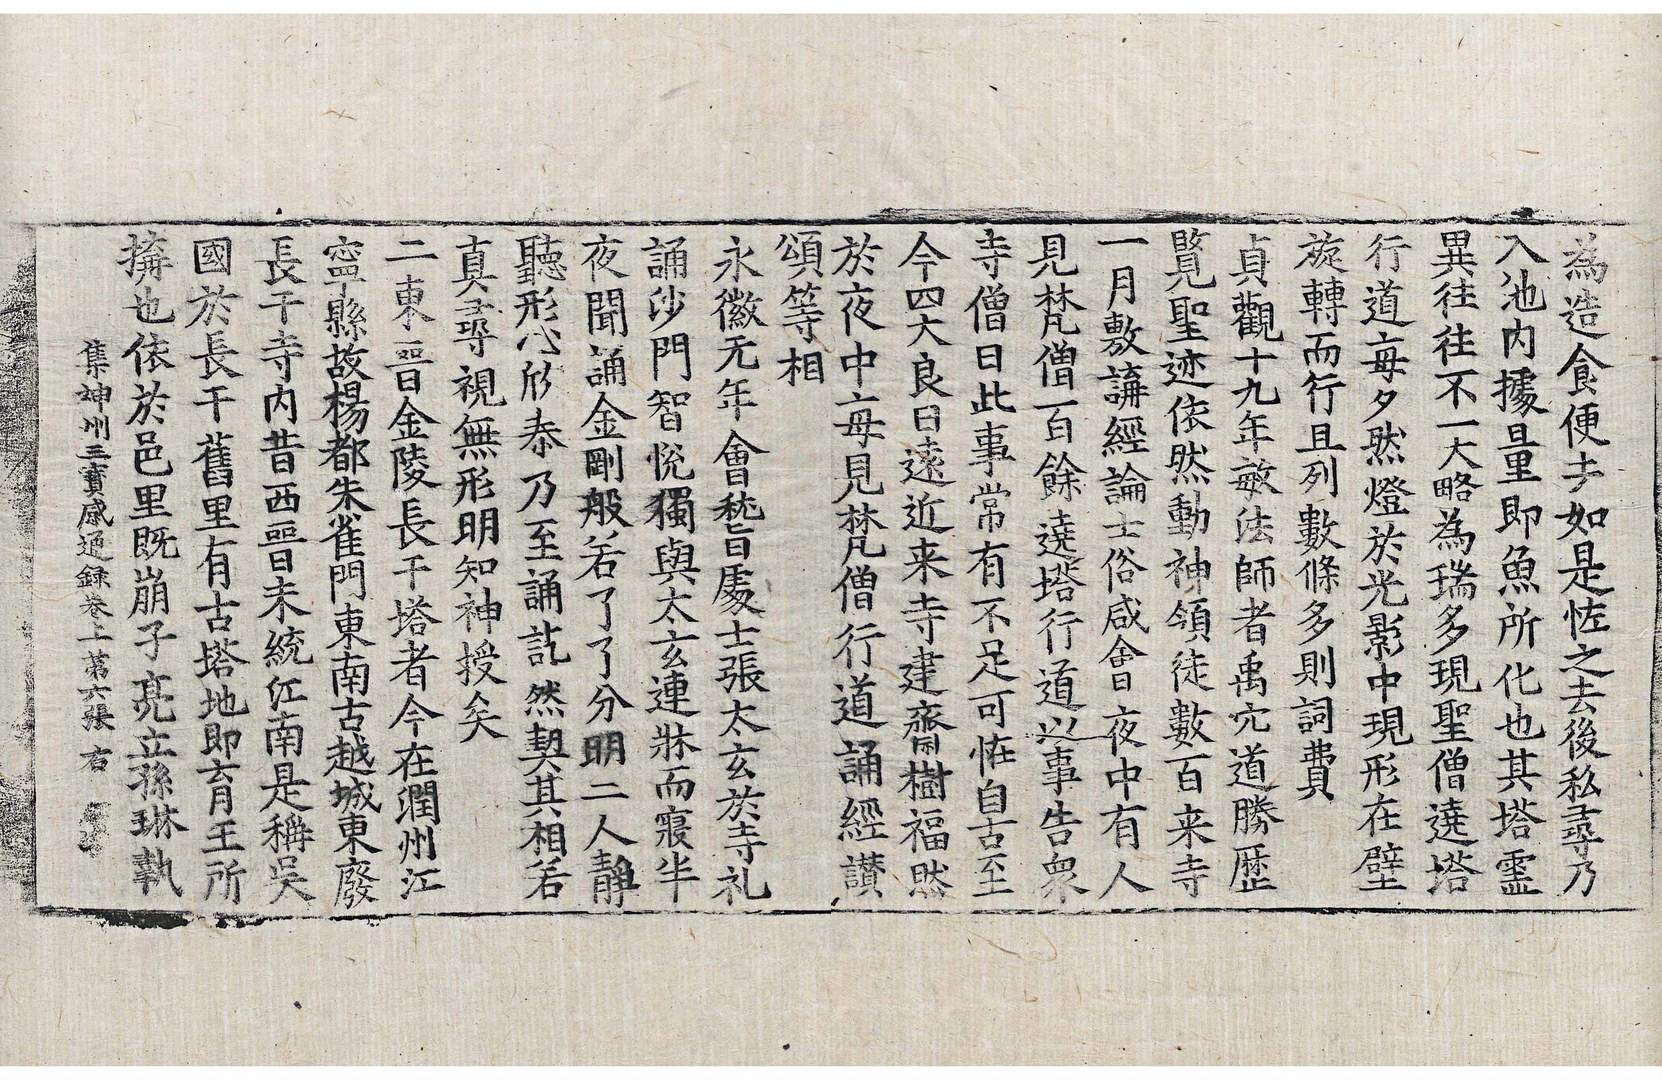 為造食便去如是恠之去後私尋乃
入池内據量即魚所化也其塔靈
異往往不一大略為瑞多現聖僧遶塔
行道每夕然燈於光影中現形在壁
旋轉而行且列數條多則詞費
貞觀十九年敏法師者禹穴道勝歷
覽聖迹依然動神領徒數百来寺
一月敷講經論士俗咸會日夜中有人
見梵僧百餘遶塔行道以事告眾
寺僧曰此事常有不足可恠自古至
今四大良日遠近来寺建齋樹福然
於夜中每見梵僧行道誦經讃
頌等相
永徽元年會稽處士張太玄於寺礼
誦沙門智悅獨與太玄連牀而寢半
夜聞誦金剛般若了了分明二人靜
聽形心欣泰乃至誦訖然契其相若
真尋視無形明知神授矣
二東晉金陵長干塔者今在潤州江
寧縣故楊都朱雀門東南古越城東廢
長干寺内昔西晉末統江南是稱吳
國於長干舊里有古塔地即育王所
搆也依於邑里既崩子亮立孫琳執
集神州三寶感通録卷上第六張右